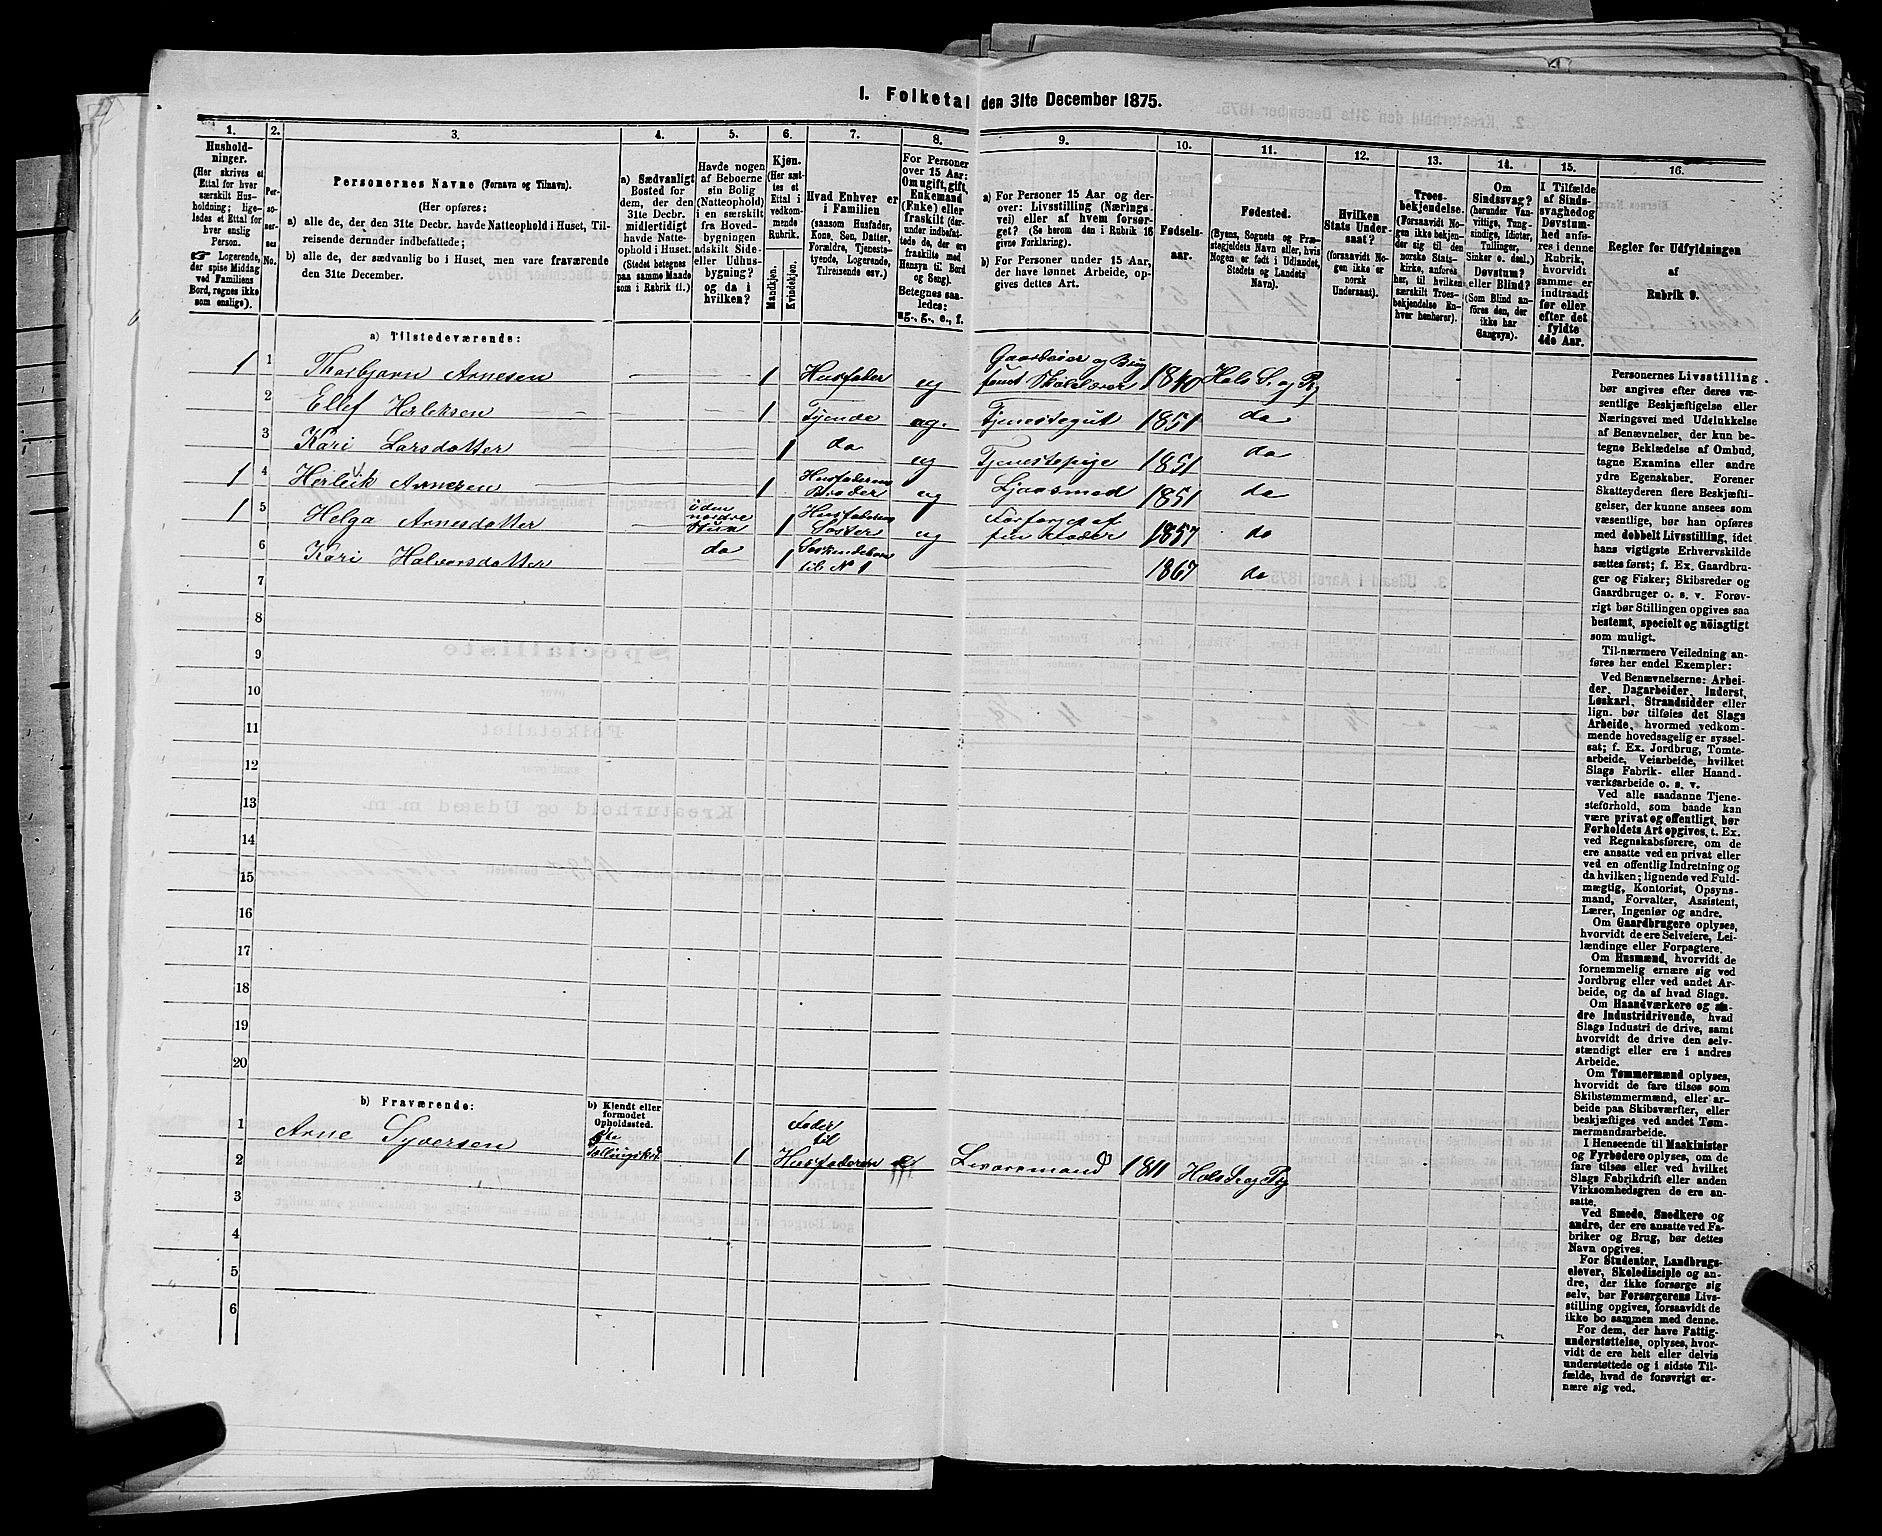 I. Folketal den 31te December 1875.
1. 2. 3. 4. 5. 6. 7. 8. 9. 10. 11. 12. 13. 14. 15. 16.
Hushold-
ninger.
(Her skrives et
Ettal for hver
særskilt Hus-
holdning; lige-
ledes et Ettal for
hver enslig
Person.
☛ Logerende,
der spise Middag
ved Familiens
Bord, regnes ikke
som enslige).
Per-
so-
ner-
nes
No.
Personernes Navne (Fornavn og Tilnavn).
(Her opføres:
a) alle de, der den 31te Decbr. havde Natteophold i Huset, Til-
reisende derunder indbefattede;
b) alle de, der sædvanlig bo i Huset, men vare fraværende
den 31te December.
a) Sædvanligt
Bosted for
dem, der den
31te Decbr.
midlertidigt
havde Natte-
ophold i Huset.
(Stedet betegnes
paa samme Maade
som i Rubrik 11.)
Havde nogen
af Beboerne
sin Bolig
(Natteophold)
i en særskilt
fra Hoved-
bygningen
adskilt Side-
eller Udhus-
bygning?
og da i
hvilken?
Kjøn.
(Her sæt-
tes et
Ettal i
vedkom-
mende
Rubrik.
Mandkjøn.
Kvindekjøn.
Hvad Enhver er
i Familien
(saasom Husfader,
Kone, Søn, Datter,
Forældre, Tjeneste-
tyende, Logerende,
Tilreisende osv.)
For Personer
over 15 Aar:
Om ugift, gift,
Enkemand
(Enke) eller
fraskilt (der-
under indbefat-
tede de, der ere
fraskilte med
Hensyn til Bord
og Seng).
Betegnes saa-
ledes:
ug., g., e., f.
a) For Personer 15 Aar og der-
over: Livsstilling (Nærings-
vei) eller af hvem forsør-
get? (Se herom den i Rubrik 16
givne Forklaring).
b) For Personer under 15 Aar,
der have lønnet Arbeide, op-
gives dettes Art.
Fødsels-
aar.
Fødested.
(Byens, Sognets og Præ-
stegjeldets Navn eller, hvis
Nogen er født i Udlandet,
Stedets og Landets
Navn).
Hvilken
Stats Under-
saat?
(forsaavidt No-
gen ikke er
norsk
Undersaat).
Troes-
bekjendelse.
(Forsaavidt No-
gen ikke bekjen-
der sig til den
norske Stats-
kirke, anføres
her, til hvilken
særskilt Troes-
bekjendelse En-
hver henhører).
Om
Sindssvag?
(herunder Van-
vittige, Tung-
sindige, Idioter,
Tullinger,
Sinker o. desl.)
Døvstum?
eller Blind?
(Som Blind an-
føres den, der
ikke har
Gangsyn).
I Tilfælde
af Sinds-
svaghed og
Døvstum-
hed anfø-
res i denne
Rubrik,
hvorvidt
samme er
indtraadt
før eller
efter det
fyldte
4de Aar.
Regler for Udfyldningen
af
Rubrik 9.
a) Tilstedeværende:
1 1 Thorbjørn Arnesen 1 Husfader ug Gaardeier og Byg
1840 Hols S. og Pg
2 Ellef Herleksen 1 Tyende ug. Tjenestegut 1851 do
3 Kari Larsdatter 1 do ug Tjenestepige 1851 do
1 4 Herleik Arnesen 1 Husfaderens
Broder ug 1851 do
1 5 Helga Arnesdatter i den
nordre
Stue 1 Husfaderens
Søster ug Forsørges af
sin Fader 1857 do
6 Kari Halvorsdatter do 1 Søskendebarn
til No 1 1867 do
7
8
9
10
11
12
13
14
15
16
17
18
19
20
b) Fraværende:
b) Kjendt eller
formodet
Opholdssted.
1 Arne Syversen 1 Fader
til
Husfaderen 1811 Hols S. og Pg
2
3
4
5
6
Personernes Livsstilling
bør angives efter deres væ-
sentlige Beskjæftigelse eller
Næringsvei med Udelukkelse
af Benævnelser, der kun be-
tegne Beklædelse af Ombud,
tagne Examina eller andre
ydre Egenskaber. Forener
Skatteyderen flere Beskjæfti-
gelser, der kunne ansees som
væsentlige, bør han opføres
med dobbelt Livsstilling, idet
hans vigtigste Erhvervskilde
sættes først; f. Ex. Gaardbru-
ger og Fisker; Skibsreder og
Gaardbruger o. s. v. Forøv-
rigt bør Stillingen opgives saa
bestemt, specielt og nøiagtigt
som muligt.
Til-nærmere Veiledning an-
føres her endel Exempler:
Ved Benævnelserne: Arbei-
der, Dagarbeider, Inderst,
Løskarl, Strandsidder eller
lign. bør tilføies det Slags
Arbeide, hvormed vedkom-
mende hovedsagelig er syssel-
sat; f. Ex. Jordbrug, Tomte-
arbeide, Veiarbeide, hvilket
Slags Fabrik- eller Haand-
værksarbeide o. s. v.
Ved alle saadanne Tjene-
steforhold, som baade kan
være privat og offentligt, bør
Forholdets Art opgives, t. Ex.
ved Regnskabsførere, om de
ere ansatte ved en privat eller
ved en offentlig Indretning og
da hvilken; lignende ved Fuld-
mægtig, Kontorist, Opsyns-
mand, Forvalter, Assistent,
Lærer, Ingeniør og andre.
Om Gaardbrugere oplyses,
hvorvidt de ere Selveiere, Lei-
lændinge eller Forpagtere.
Om Husmænd, hvorvidt de
fornemmelig ernære sig ved
Jordbrug eller ved andet Ar-
beide, og da af hvad Slags.
Om Haandværkere og an-
dre Industridrivende, hvad
Slags Industri de drive, samt
hvorvidt de drive den selv-
stændigt eller ere i andres
Arbeide.
Om Tømmermænd oplyses,
hvorvidt de fare tilsøs som
Skibstømmermænd, eller ar-
beide paa Skibsværfter, eller
beskjæftiges ved andet Tøm-
mermandsarbeide.
I Henseende til Maskinister
og Fyrbødere oplyses, om de
fare tilsøs eller ved hvilket
Slags Fabrikdrift eller anden
Virksomhedsgren de ere an-
satte.
Ved Smede, Snedkere og
andre, der ere ansatte ved Fa-
briker og Brug, bør dettes
Navn opgives.
For Studenter, Landbrugs-
elever, Skoledisciple og an-
dre, der ikke forsørge sig
selv, bør Forsørgerens Livs-
stilling opgives, forsaavidt de
ikke bo sammen med denne.
For dem, der have Fattig-
understøttelse, oplyses, hvor-
vidt de ere helt eller delvis
understøttede og i sidste Til-
fælde, hvad de forøvrigt er-
nære sig ved.